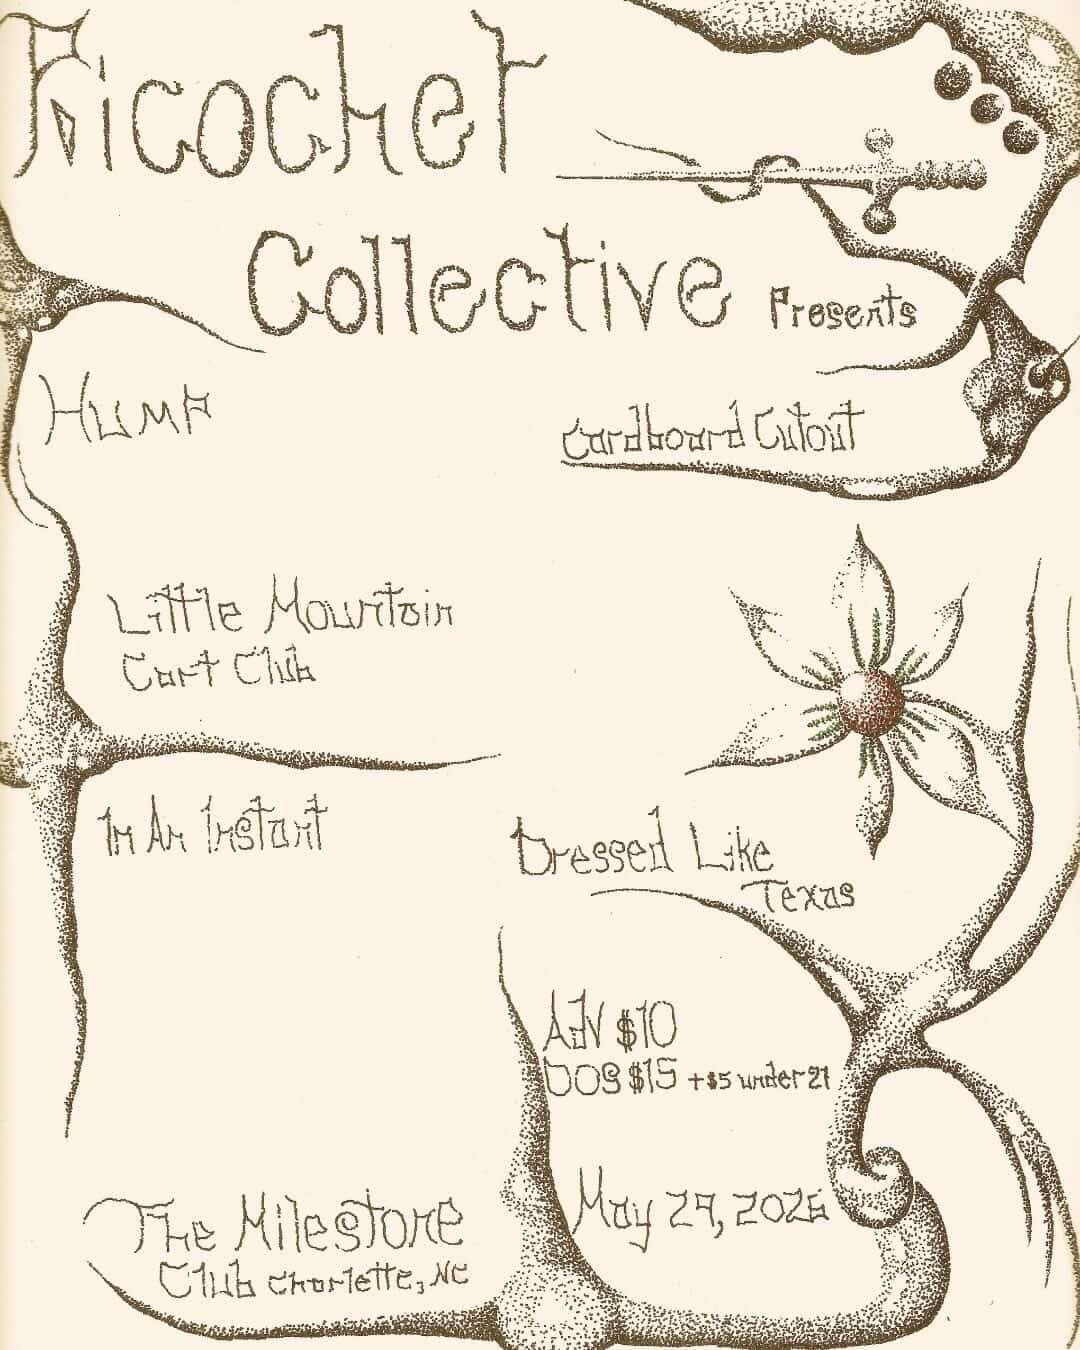 Ricochet
Collective Presents
Hump
Cardboard Cutout
Little Mountain
Cart Club
In An Instant
Dressed Like
Texas
ADV $10
DOS $15 +$5 under 21
May 29, 2026
The Milestone
Club Charlotte, NC